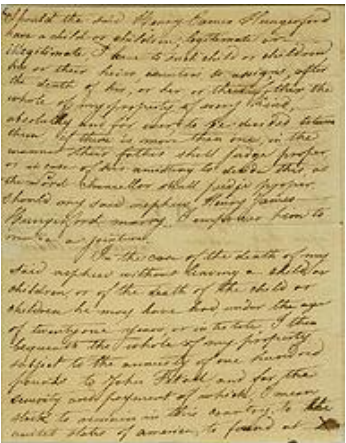 Should the said Henry James Hungerford
have a child or children, legitimate or
illegitimate, I leave to such child or children
his or their heirs executors & assigns, after
the death of his, or her or their father the
whole of my property of every kind,
absolutely and for ever, to be divided between
them if there is more than one, in the
manner their father shall judge proper,
or in case of his omitting to decide this, as
the Lord Chancellor shall judge proper.
Should my said nephew, Henry James
Hungerford marry, I empower him to
make a jointure.
In the case of the death of my
said nephew without leaving a child or
children, or of the death of the child or
children he may have had under the age
of twenty one years, or intestate, I then
bequeath the whole of my property
subject to the annuity of one hundred
pounds to John Fitall and for the
security and payment of which, I mean
stock to remain in this country, to the
united states of america, to found at